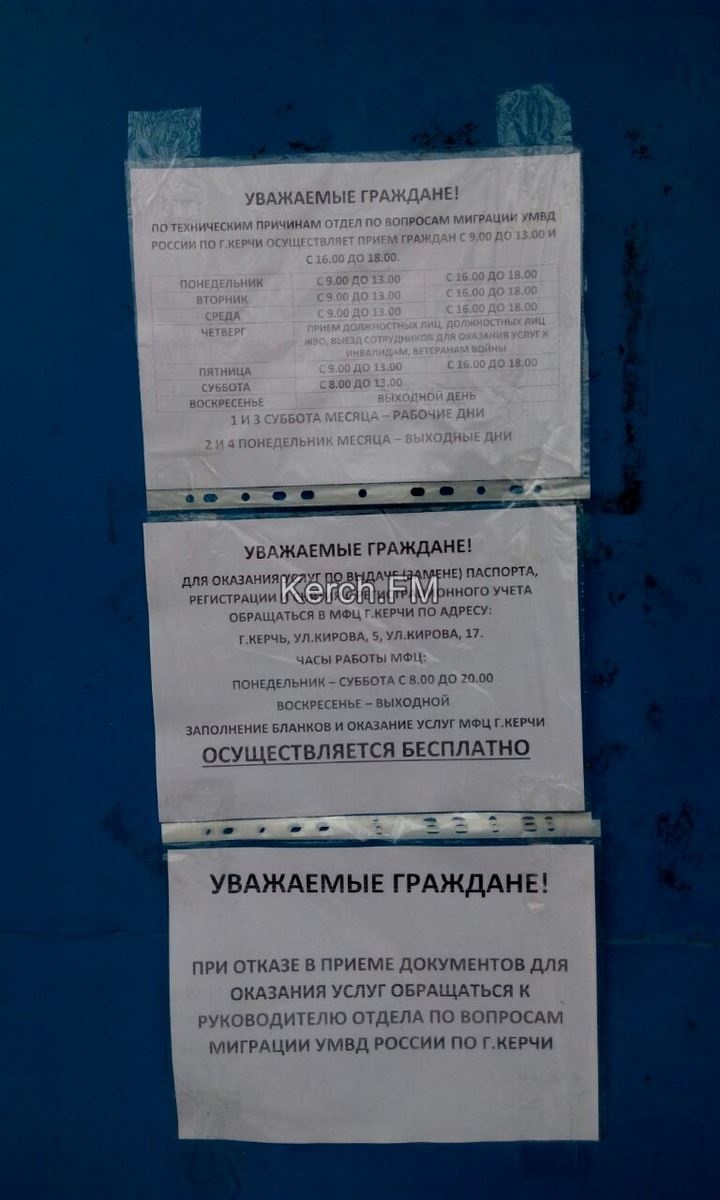 УВАЖАЕМЫЕ ГРАЖДАНЕ!
ПО ТЕХНИЧЕСКИМ ПРИЧИНАМ ОТДЕЛ ПО ВОПРОСАМ МИГРАЦИИ УМВД
РОССИИ ПО Г.КЕРЧИ ОСУЩЕСТВЛЯЕТ ПРИЕМ ГРАЖДАН С 9.00 ДО 13.00 И
С 16.00 ДО 18.00.
ПОНЕДЕЛЬНИК С 9.00 ДО 13.00 С 16.00 ДО 18.00
ВТОРНИК С 9.00 ДО 13.00 С 16.00 ДО 18.00
СРЕДА С 9.00 ДО 13.00 С 16.00 ДО 18.00
ЧЕТВЕРГ ПРИЕМ ДОЛЖНОСТНЫХ ЛИЦ, ДОЛЖНОСТНЫХ ЛИЦ
ЖЭО, ВЫЕЗД СОТРУДНИКОВ ДЛЯ ОКАЗАНИЯ УСЛУГ К
ИНВАЛИДАМ, ВЕТЕРАНАМ ВОЙНЫ
ПЯТНИЦА С 9.00 ДО 13.00 С 16.00 ДО 18.00
СУББОТА С 8.00 ДО 13.00
ВОСКРЕСЕНЬЕ ВЫХОДНОЙ ДЕНЬ
1 И 3 СУББОТА МЕСЯЦА – РАБОЧИЕ ДНИ
2 И 4 ПОНЕДЕЛЬНИК МЕСЯЦА – ВЫХОДНЫЕ ДНИ
УВАЖАЕМЫЕ ГРАЖДАНЕ!
ДЛЯ ОКАЗАНИЯ УСЛУГ ПО ВЫДАЧЕ (ЗАМЕНЕ) ПАСПОРТА,
РЕГИСТРАЦИИ РЕГИСТРАЦИОННОГО УЧЕТА
Kerch.FM
ОБРАЩАТЬСЯ В МФЦ Г.КЕРЧИ ПО АДРЕСУ:
Г.КЕРЧЬ, УЛ.КИРОВА, 5, УЛ.КИРОВА, 17.
ЧАСЫ РАБОТЫ МФЦ:
ПОНЕДЕЛЬНИК – СУББОТА С 8.00 ДО 20.00
ВОСКРЕСЕНЬЕ – ВЫХОДНОЙ
ЗАПОЛНЕНИЕ БЛАНКОВ И ОКАЗАНИЕ УСЛУГ МФЦ Г.КЕРЧИ
ОСУЩЕСТВЛЯЕТСЯ БЕСПЛАТНО
УВАЖАЕМЫЕ ГРАЖДАНЕ!
ПРИ ОТКАЗЕ В ПРИЕМЕ ДОКУМЕНТОВ ДЛЯ
ОКАЗАНИЯ УСЛУГ ОБРАЩАТЬСЯ К
РУКОВОДИТЕЛЮ ОТДЕЛА ПО ВОПРОСАМ
МИГРАЦИИ УМВД РОССИИ ПО Г.КЕРЧИ